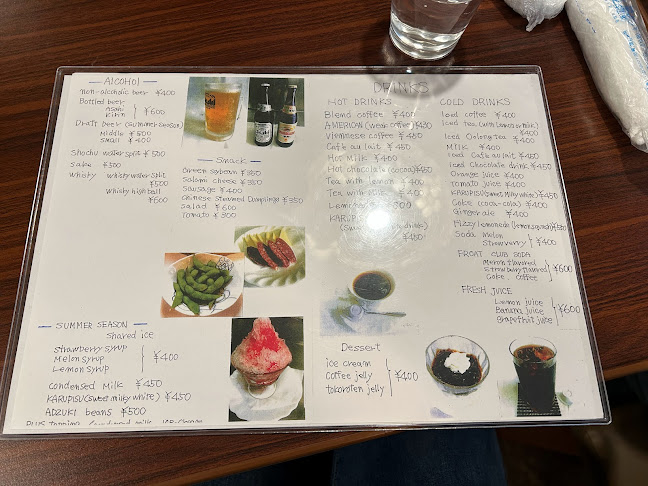 ALCOHOL
non-alcoholic beer ¥400
Bottled beer
Asahi
Kirin
¥600
Draft beer (summer season)
Middle ¥500
small ¥400
Shochu water split ¥500
sake
Whisky whisky water split
¥500
whisky high ball
¥600
Smack
Green soybean ¥350
Salami cheese ¥350
Sausage ¥400
Chinese Steamed Dumplings ¥350
Salad ¥600
Tomato ¥300
SUMMER SEASON
Shared ice
Strawberry syrup
Melon syrup
Lemon syrup
¥400
condensed Milk ¥450
KARUPISU (sweet milky white) ¥450
ADZUKI beans ¥500
DRINKS
HOT DRINKS
Blend coffee ¥400
AMERICAN (weak coffee) ¥430
Viennese coffee ¥450
Café au lait ¥450
Hot Milk ¥400
Hot chocolate (cocoa) ¥450
Tea with lemon ¥400
Tea with
Lemon
KARUPISU
¥450
Dessert
ice cream
Coffee jelly
tokoroten jelly
¥400
COLD DRINKS
Iced coffee ¥400
Iced tea (with Lemon or milk)
¥400
Iced Oolong tea ¥400
Milk ¥400
Iced Café au lait ¥450
Iced Chocolate drink ¥450
Orange juice ¥400
Tomato juice ¥400
KARUPISU (sweet milky white) ¥450
Coke (coca-cola) ¥400
Ginger ale ¥400
Fizzy lemonade
Soda Melon
Strawverry
¥400
FROAT CLUB SODA
Meron flavored
Strawbury flavored
Coke. Coffee
¥600
FRESH JUICE
Lemon juice
Banana juice
Grapefruit juice
¥600